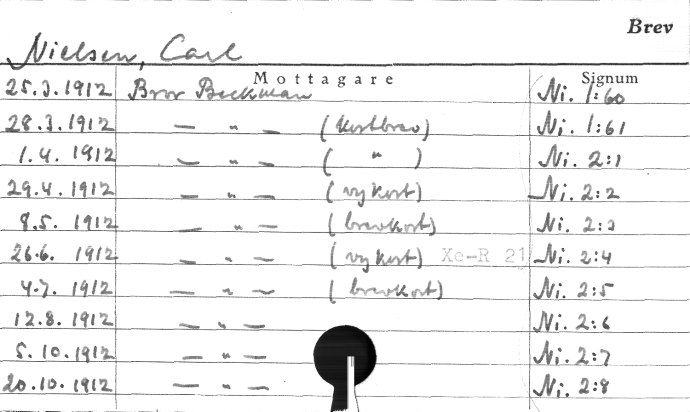 Brev
Nielsen, Carl
Mottagare Signum
25.3.1912 Bror Beckman Ni. 1:60
28.3.1912 — " — (kortbrev) Ni. 1:61
1.4.1912 — " — ( " ) Ni. 2:1
29.4.1912 — " — (vykort) Ni. 2:2
8.5.1912 — " — (brevkort) Ni. 2:3
26.6.1912 — " — (vykort) Xe-R 21 Ni. 2:4
4.7.1912 — " — (brevkort) Ni. 2:5
12.8.1912 — " — Ni. 2:6
5.10.1912 — " — Ni. 2:7
20.10.1912 — " — Ni. 2:8